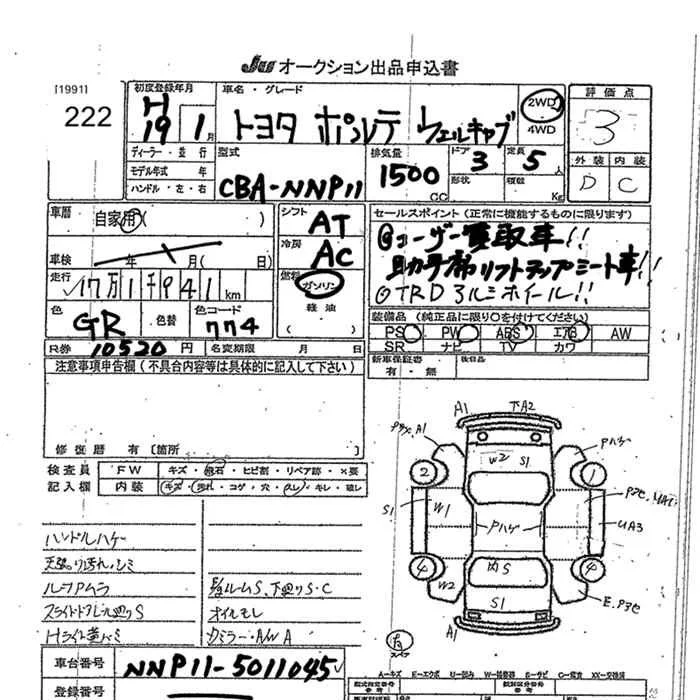 JU オークション出品申込書
[1991]
222
初度登録年月
H
19 1月
車名・グレード
トヨタ ポルテ ウェルキャブ
2WD
4WD
評価点
3
外装 内装
D C
ディーラー・並行
モデル年式 年
ハンドル・左・右
型式
CBA-NNP11
排気量
1500
CC
ドア 3
形状
定員 5 人
積載 Kg
車歴 自家用( )
車検 年 月( 日)
走行 17万1千941 km
色 GR 色替
色コード 774
R券 10520 円 名変期限 月 日
シフト AT
冷房 AC
燃料 ガソリン
軽油
( )
セールスポイント(正常に機能するものに限ります)
◎ユーザー買取車!!
助手席リフトアップシート車!!
◎TRDアルミホイール!!
装備品(純正品に限り○を付けてください)
PS PW ABS エアB AW
SR ナビ TV カワ
新車保証書
有・無
後日品
注意事項申告欄(不具合内容等は具体的に記入して下さい)
修復歴 有〔箇所 〕
検査員
記入欄
FW キズ・飛石・ヒビ割・リペア跡・×要
内装 キズ・汚れ・コゲ・穴・スレ・キレ・破レ
ハンドルハゲ
天張り汚れ、シミ
ルーフムラ
スライドドアレール廻りS
Hライト黄バミ
下廻りS・C
オイルモレ
カミラー・AW A
A1 下A2
A1
W2 S1
Pハゲ
2 1
S1 W1
Pハゲ
UA3
4 4
W2
内S
S1
A1
車台番号 NNP11-5011045
登録番号
A―キズ E―エクボ U―凹み W―補修跡 S―サビ C―腐食 XX―交換済